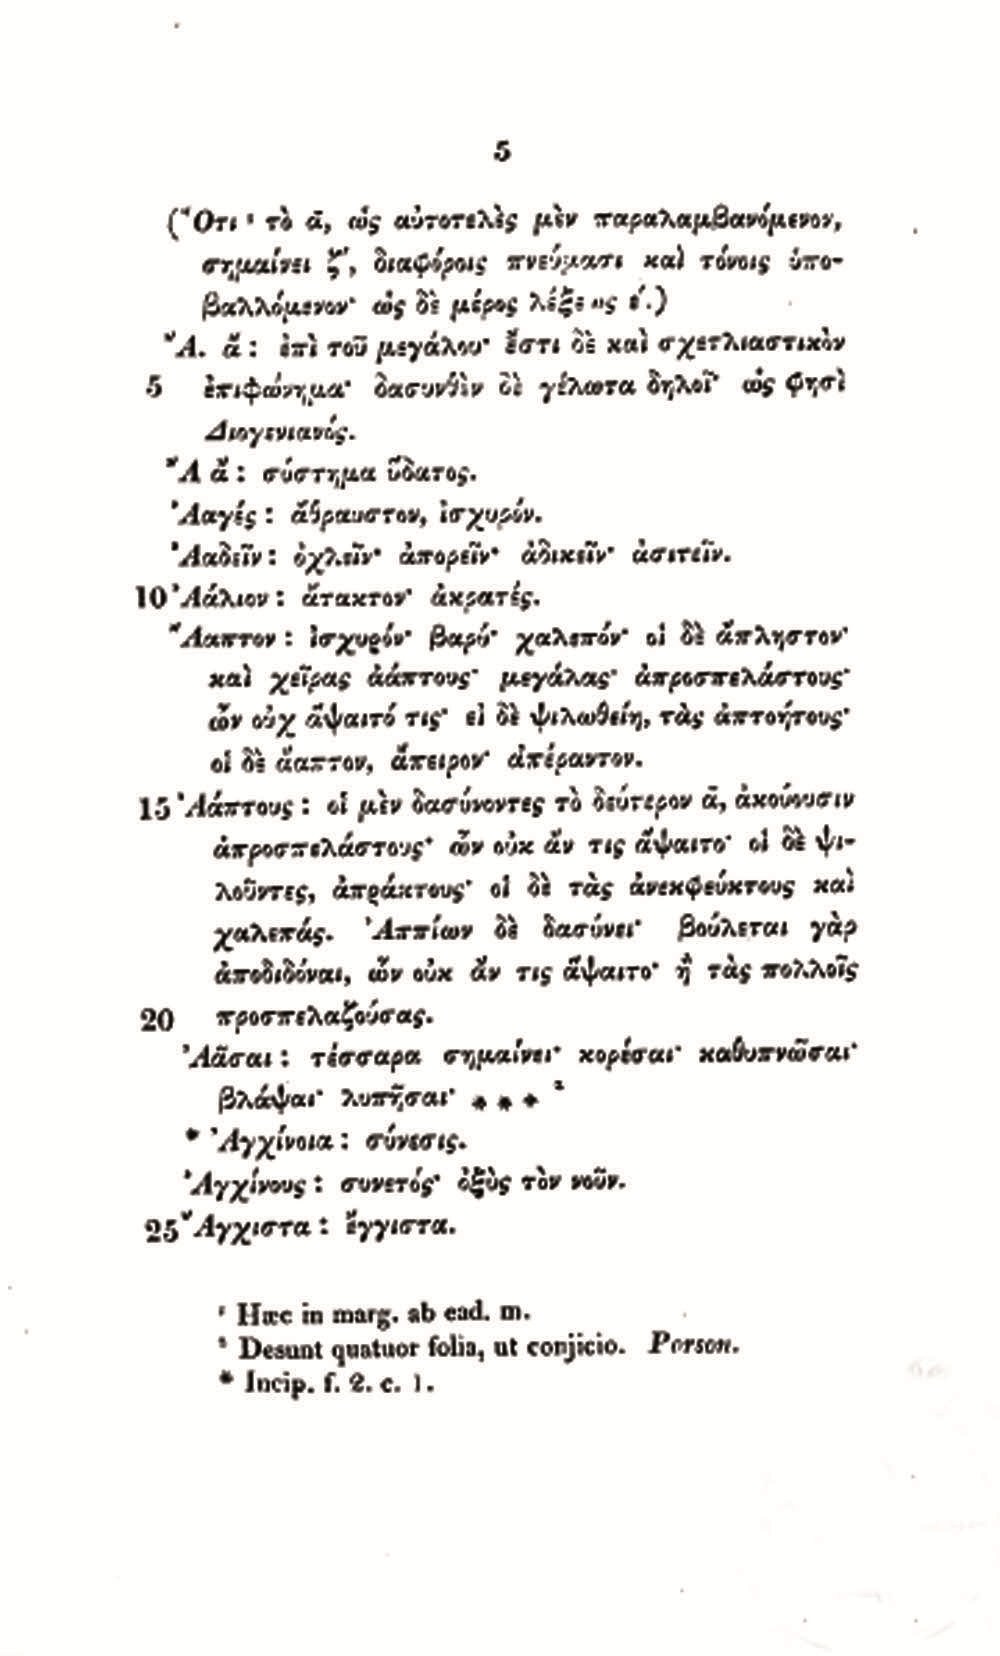 5
(Ὅτι ¹ τὸ ᾱ, ὡς αὐτοτελὲς μὲν παραλαμβανόμενον,
σημαίνει ζ΄, διαφόροις πνεύμασι καὶ τόνοις ὑπο-
βαλλόμενον· ὡς δὲ μέρος λέξεως ε΄.)
Ἄ. ἄ: ἐπὶ τοῦ μεγάλου· ἔστι δὲ καὶ σχετλιαστικὸν
5 ἐπιφώνημα· δασυνθὲν δὲ γέλωτα δηλοῖ· ὥς φησὶ
Διογενιανός.
Ἄ ἄ: σύστημα ὕδατος.
Ἀαγές: ἄθραυστον, ἰσχυρόν.
Ἀαδεῖν: ὀχλεῖν· ἀπορεῖν· ἀδικεῖν· ἀσιτεῖν.
10 Ἀάλιον: ἄτακτον· ἀκρατές.
Ἄαπτον: ἰσχυρόν· βαρύ· χαλεπόν· οἱ δὲ ἄπληστον·
καὶ χεῖρας ἀάπτους· μεγάλας· ἀπροσπελάστους·
ὧν οὐχ ἅψαιτό τις· εἰ δὲ ψιλωθείη, τὰς ἀπτοήτους·
οἱ δὲ ἄαπτον, ἄπειρον· ἀπέραντον.
15 Ἀάπτους: οἱ μὲν δασύνοντες τὸ δεύτερον ᾱ, ἀκούουσιν
ἀπροσπελάστους· ὧν οὐκ ἄν τις ἅψαιτο· οἱ δὲ ψι-
λοῦντες, ἀπράκτους· οἱ δὲ τὰς ἀνεκφεύκτους καὶ
χαλεπάς. Ἀππίων δὲ δασύνει· βούλεται γὰρ
ἀποδιδόναι, ὧν οὐκ ἄν τις ἅψαιτο· ἢ τὰς πολλοῖς
20 προσπελαζούσας.
Ἀᾶσαι: τέσσαρα σημαίνει· κορέσαι· καθυπνῶσαι·
βλάψαι· λυπῆσαι· * * * ²
* Ἀγχίνοια: σύνεσις.
Ἀγχίνους: συνετός· ὀξὺς τὸν νοῦν.
25 Ἄγχιστα: ἔγγιστα.
¹ Hæc in marg. ab ead. m.
² Desunt quatuor folia, ut conjicio. Porson.
* Incip. f. 2. c. 1.